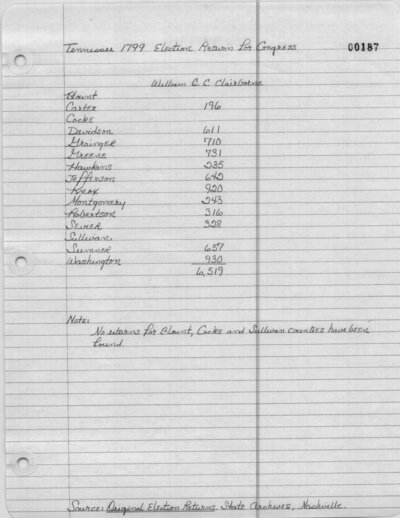 Tennessee 1799 Election Return for Congress 00187
William C. C. Claiborne
Blount
Carter 196
Cocke
Davidson 611
Grainger 710
Greene 731
Hawkins 235
Jefferson 642
Knox 920
Montgomery 243
Robertson 316
Sevier 328
Sullivan
Sumner 657
Washington 930
6,519
Note:
No returns for Blount, Cocke and Sullivan counties have been
found.
Source: Original Election Returns. State Archives, Nashville.